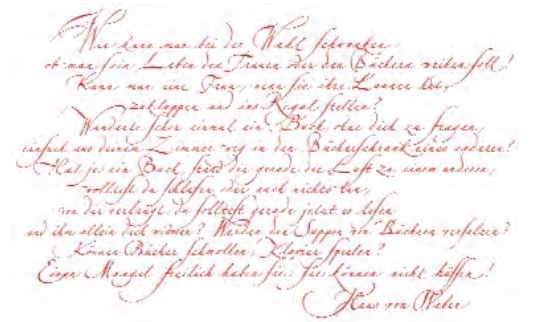 Wie kann man bei der Wahl schwanken
ob man sein Leben den Frauen oder den Büchern weihen soll!
Kann man eine Frau, wenn sie ihre Launen hat,
zuklappen und ins Regal stellen?
Wanderte schon einmal ein Buch, ohne dich zu fragen,
einfach aus deinem Zimmer weg in den Bücherschrank eines anderen?
Hat je ein Buch, als du gerade die Lust zu einem anderen,
wolltest du schlafen oder auch nichts tun,
von dir verlangt, du solltest gerade jetzt es lesen
und ihm allein dich widmen? Werden die Suppen von Büchern versalzen?
Können Bücher schmollen, Klavier spielen?
Einen Mangel freilich haben sie: sie können nicht küssen!
Hans von Weber